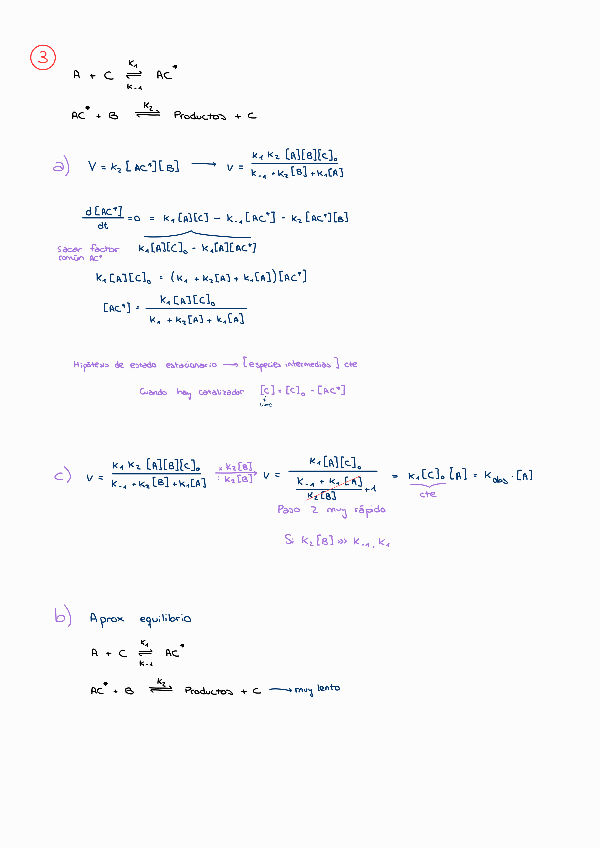 3
A + C ⇌ AC*
K₁
K₋₁
AC* + B ⇌ Productos + C
K₂
a) V = K₂ [AC*][B] → v = K₁ K₂ [A][B][C]₀ / K₋₁ + K₂[B] + K₁[A]
d[AC*]/dt = 0 = K₁[A][C] - K₋₁[AC*] - K₂[AC*][B]
sacar factor común AC* K₁[A][C]₀ - K₁[A][AC*]
K₁[A][C]₀ = (K₁ + K₂[A] + K₁[A])[AC*]
[AC*] = K₁[A][C]₀ / K₁ + K₂[A] + K₁[A]
Hipótesis de estado estacionario → [especies intermedias] cte
Cuando hay catalizador [C] = [C]₀ - [AC*]
c) v = K₁ K₂ [A][B][C]₀ / K₋₁ + K₂[B] + K₁[A] × K₂[B] : K₂[B] → v = K₁[A][C]₀ / (K₋₁ + K₁[A] / K₂[B] + 1) = K₁[C]₀ [A] = Kobs · [A]
cte
Paso 2 muy rápido
Si K₂[B] >>> K₋₁, K₁
b) Aprox equilibrio
A + C ⇌ AC*
K₁
K₋₁
AC* + B ⇌ Productos + C → muy lento
K₂